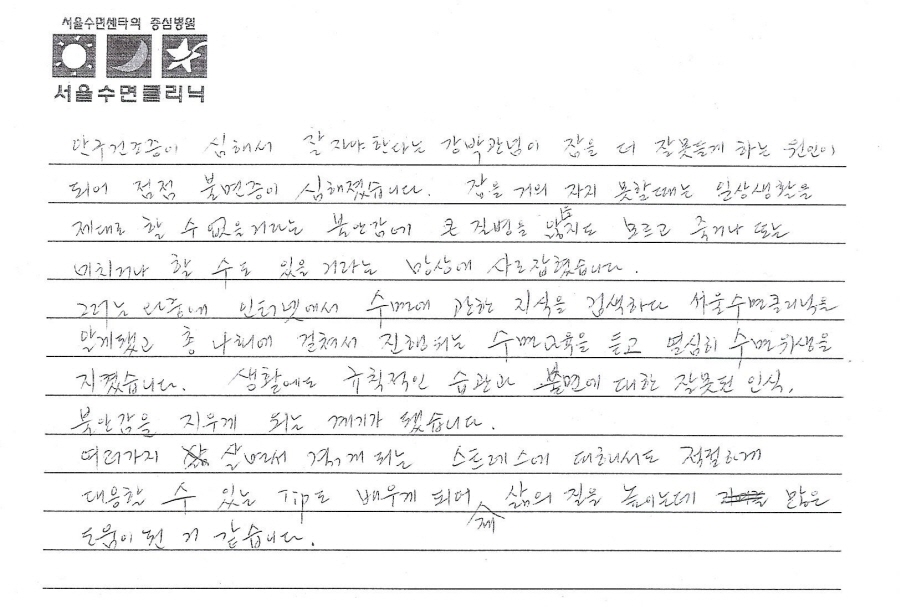 서울수면센타의 중심병원
서울수면클리닉
안구건조증이 심해서 잘 자야한다는 강박관념이 잠을 더 잘못들게 하는 원인이
되어 점점 불면증이 심해졌습니다. 잠을 거의 자지 못할때는 일상생활을
제대로 할 수 없을거라는 불안감에 큰 질병을 앓는지도 모르고 죽거나 또는
미치거나 할 수도 있을 거라는 망상에 사로잡혔습니다.
그러는 와중에 인터넷에서 수면에 관한 지식을 검색하다 서울수면클리닉을
알게됐고 총 네 회에 걸쳐서 진행되는 수면교육을 듣고 열심히 수면위생을
지켰습니다. 생활에도 규칙적인 습관과 불면에 대한 잘못된 인식,
불안감을 지우게 되는 계기가 됐습니다.
여러가지 살면서 겪게 되는 스트레스에 대해서도 적절하게
대응할 수 있는 Tip도 배우게 되어 제 삶의 질을 높이는데 많은
도움이 된 거 같습니다.